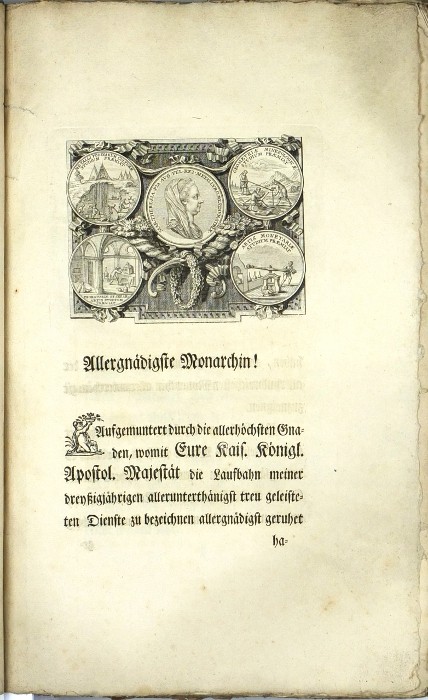 Allergnädigste Monarchin!
Aufgemuntert durch die allerhöchsten Gna-
den, womit Eure Kais. Königl.
Apostol. Majestät die Laufbahn meiner
dreyßigjährigen allerunterthänigst treu geleiste-
ten Dienste zu bezeichnen allergnädigst geruhet
ha-